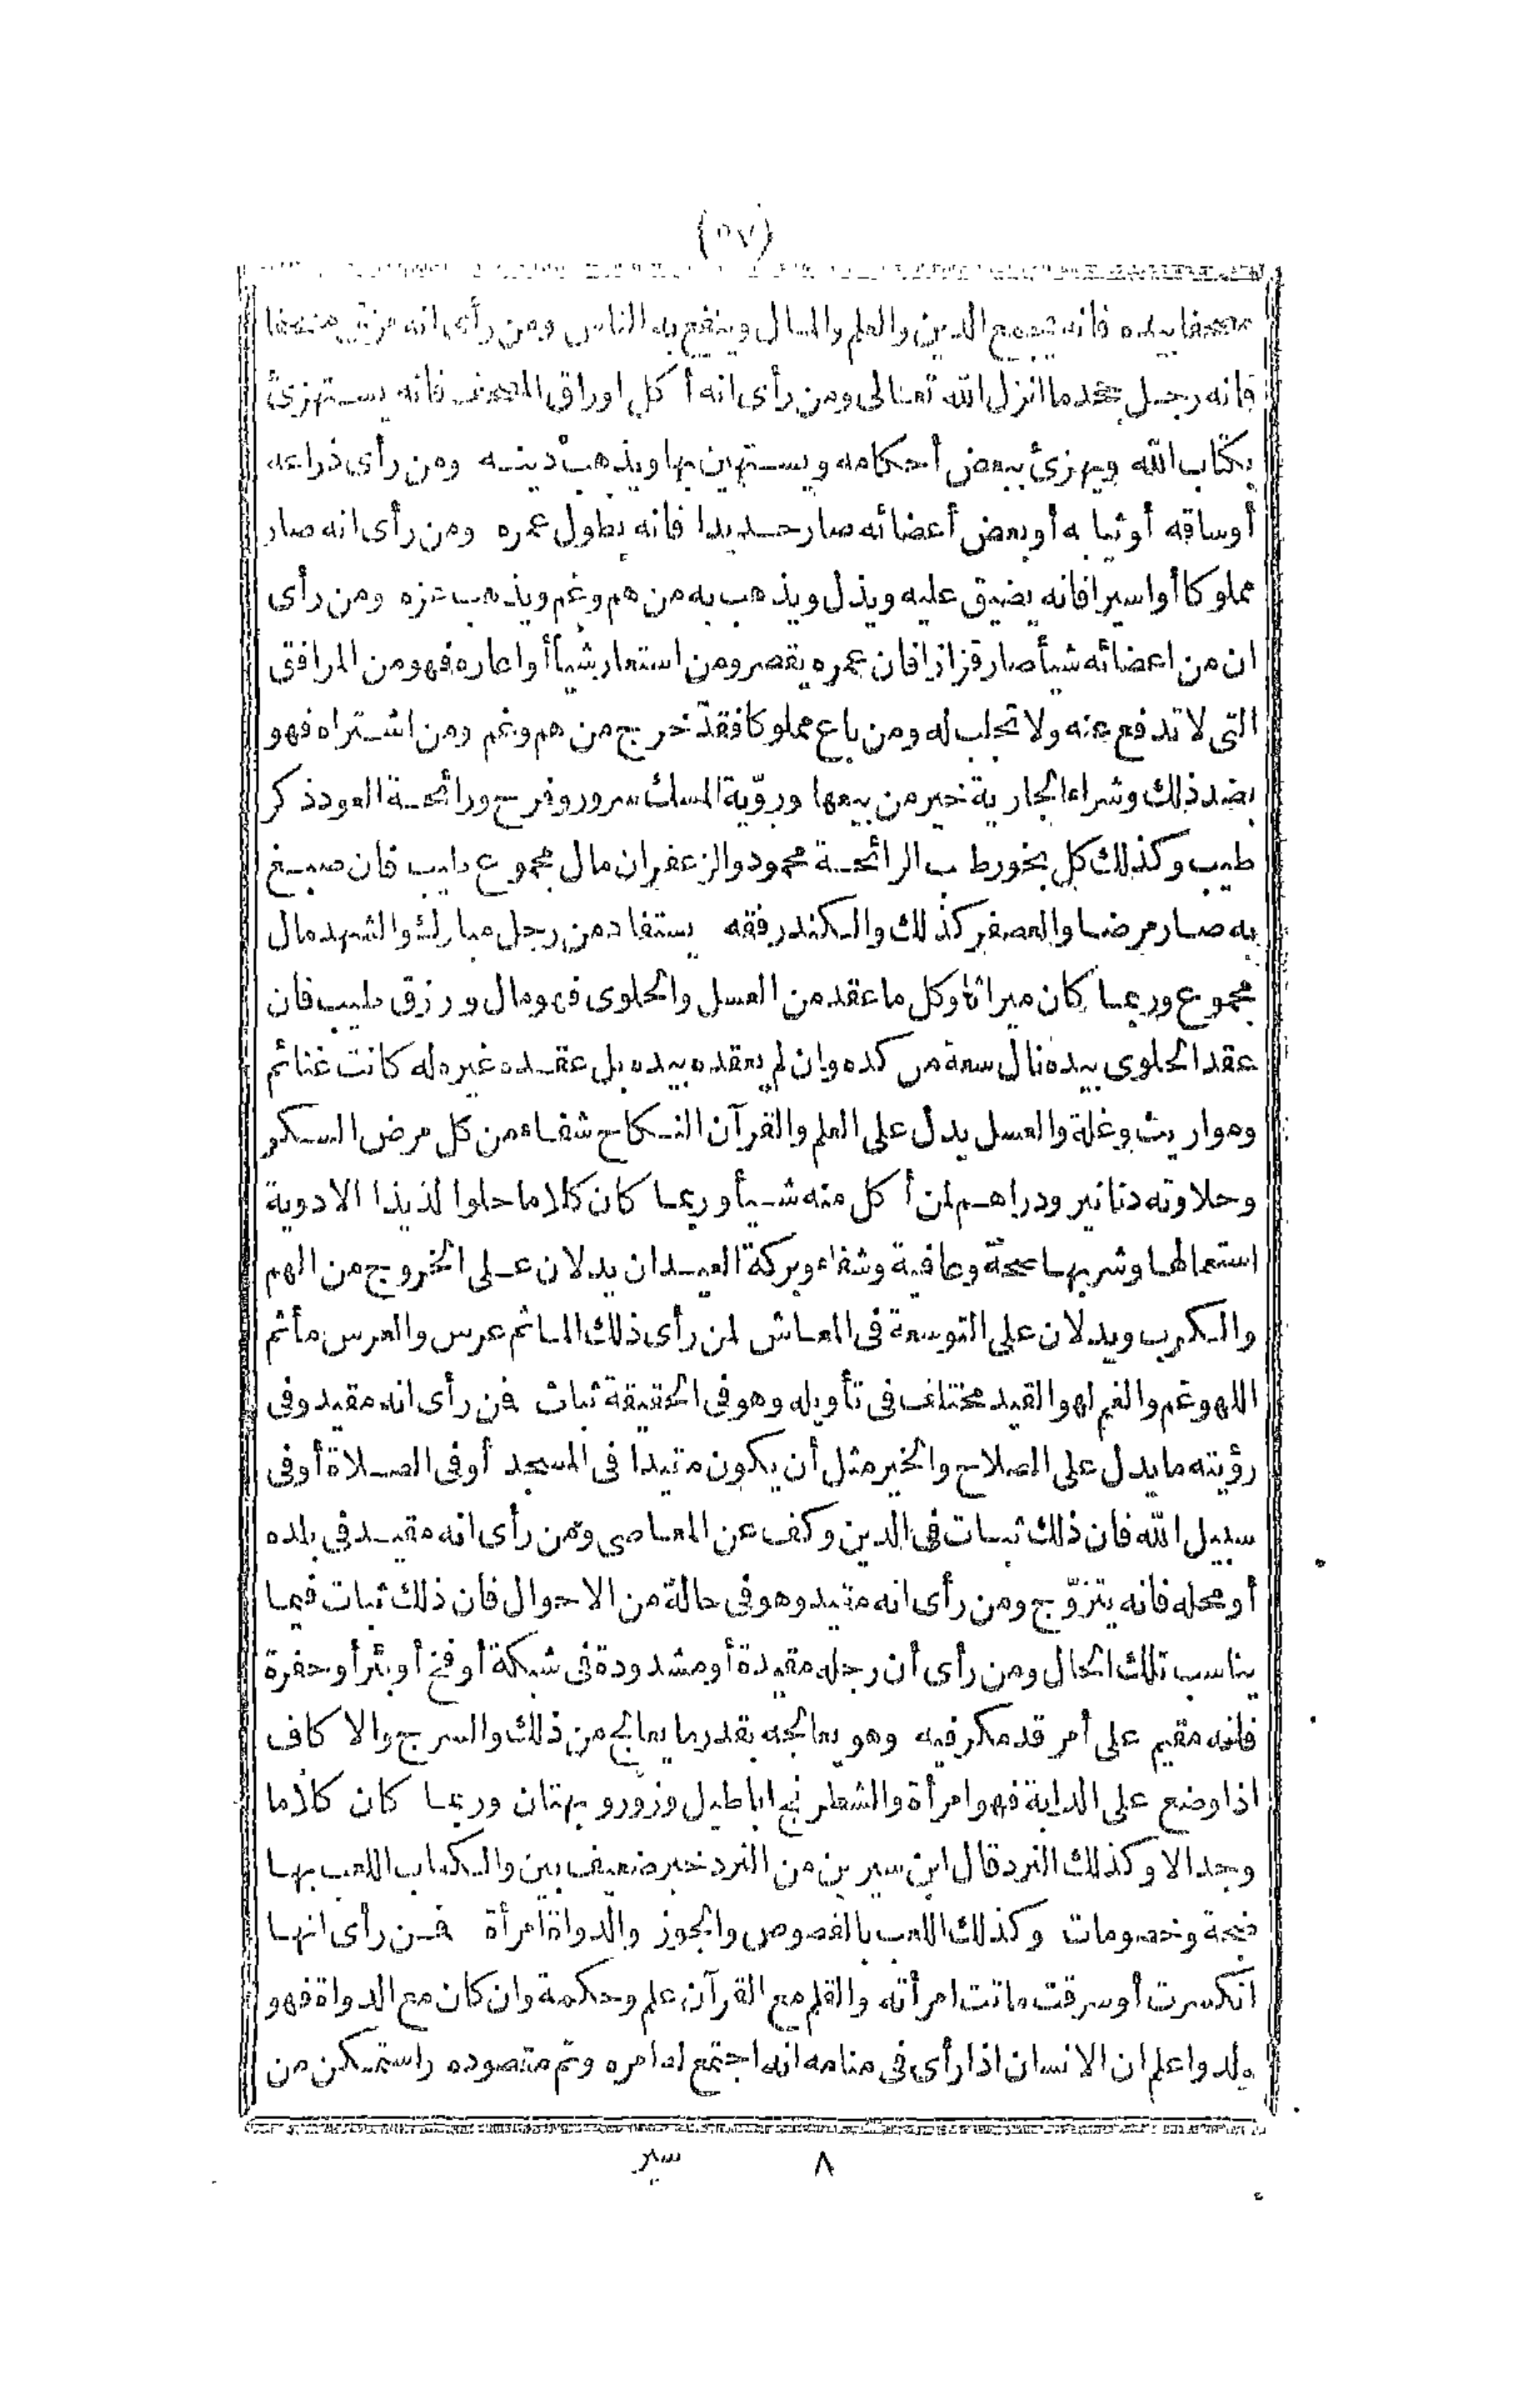 (٥٧)
مصحفا بيده فانه يجمع الدين والعلم والمال وينتفع به الناس ومن رأى انه مزق مصحفا
فانه رجل يجحد ما انزل الله تعالى ومن رأى انه أكل اوراق المصحف فانه يستهزئ
بكتاب الله ويهزئ ببعض أحكامه ويستهين بها ويذهب دينه ومن رأى ذراعه
أوساقه أوثيابه أو بعض أعضائه صار حديدا فانه يطول عمره ومن رأى انه صار
مملوكا أواسيرا فانه يضيق عليه ويذل ويذهب به من هم وغم ويذهب عزه ومن رأى
ان من اعضائه شيأ صار قزازا فان عمره يقصر ومن استعار شيأ أو اعاره فهو من المرافق
التى لا تدفع عنه ولا تجلب له ومن باع مملوكا فقد خرج من هم وغم ومن اشتراه فهو
بضد ذلك وشراء الجارية خير من بيعها ورؤية المسك سرور وفرح ورائحة العود ذكر
طيب وكذلك كل بخور طيب الرائحة محمود والزعفران مال مجموع طيب فان صبغ
به صار مرضا والعصفر كذلك والكندر فقه يستفاد من رجل مبارك والشهد مال
مجموع وربما كان ميراثا وكل ما عقد من العسل والحلوى فهو مال ورزق طيب فان
عقد الحلوى بيده نال سعة من كده وان لم يعقده بيده بل عقده غيره له كانت غنائم
ومواريث وغلة والعسل يدل على العلم والقرآن النكاح شفاء من كل مرض السكر
وحلاوته دنانير ودراهم لمن أكل منه شيأ وربما كان كلاما حلوا لذيذا الادوية
استعمالها وشربها صحة وعافية وشفاء وبركة العيدان يدلان على الخروج من الهم
والكرب ويدلان على التوسعة فى المعاش لمن رأى ذلك الماثم عرس والعرس مأتم
اللهو غم والغم لهو والقيد مختلف فى تأويله وهو فى الحقيقة ثبات فمن رأى انه مقيد وفى
رؤيته ما يدل على الصلاح والخير مثل أن يكون مقيدا فى المسجد أو فى الصلاة أو فى
سبيل الله فان ذلك ثبات فى الدين وكف عن المعاصى ومن رأى انه مقيد فى بلده
أو محله فانه يتزوّج ومن رأى انه مقيد وهو فى حالة من الاحوال فان ذلك ثبات فيما
يناسب تلك الحال ومن رأى أن رجله مقيدة أو مشدودة فى شبكة أو فخ أو بئر أو حفرة
فانه مقيم على أمر قد مكر فيه وهو يعالجه بقدر ما يعالج من ذلك والسرج والا كاف
اذا وضع على الدابة فهو امرأة والشطرنج اباطيل وزور وبهتان وربما كان كلاما
وجدالا وكذلك النرد قال ابن سيرين من النرد خبر ضعيف بين والكعاب اللعب بها
ضجة وخصومات وكذلك اللعب بالفصوص والجوز والدواة امرأة فمن رأى انها
انكسرت أو سرقت ماتت امرأته والقلم مع القرآن علم وحكمة وان كان مع الدواة فهو
ولد واعلم ان الانسان اذا رأى فى منامه انه اجتمع له امره وتم مقصوده واستمكن من
٨ سير